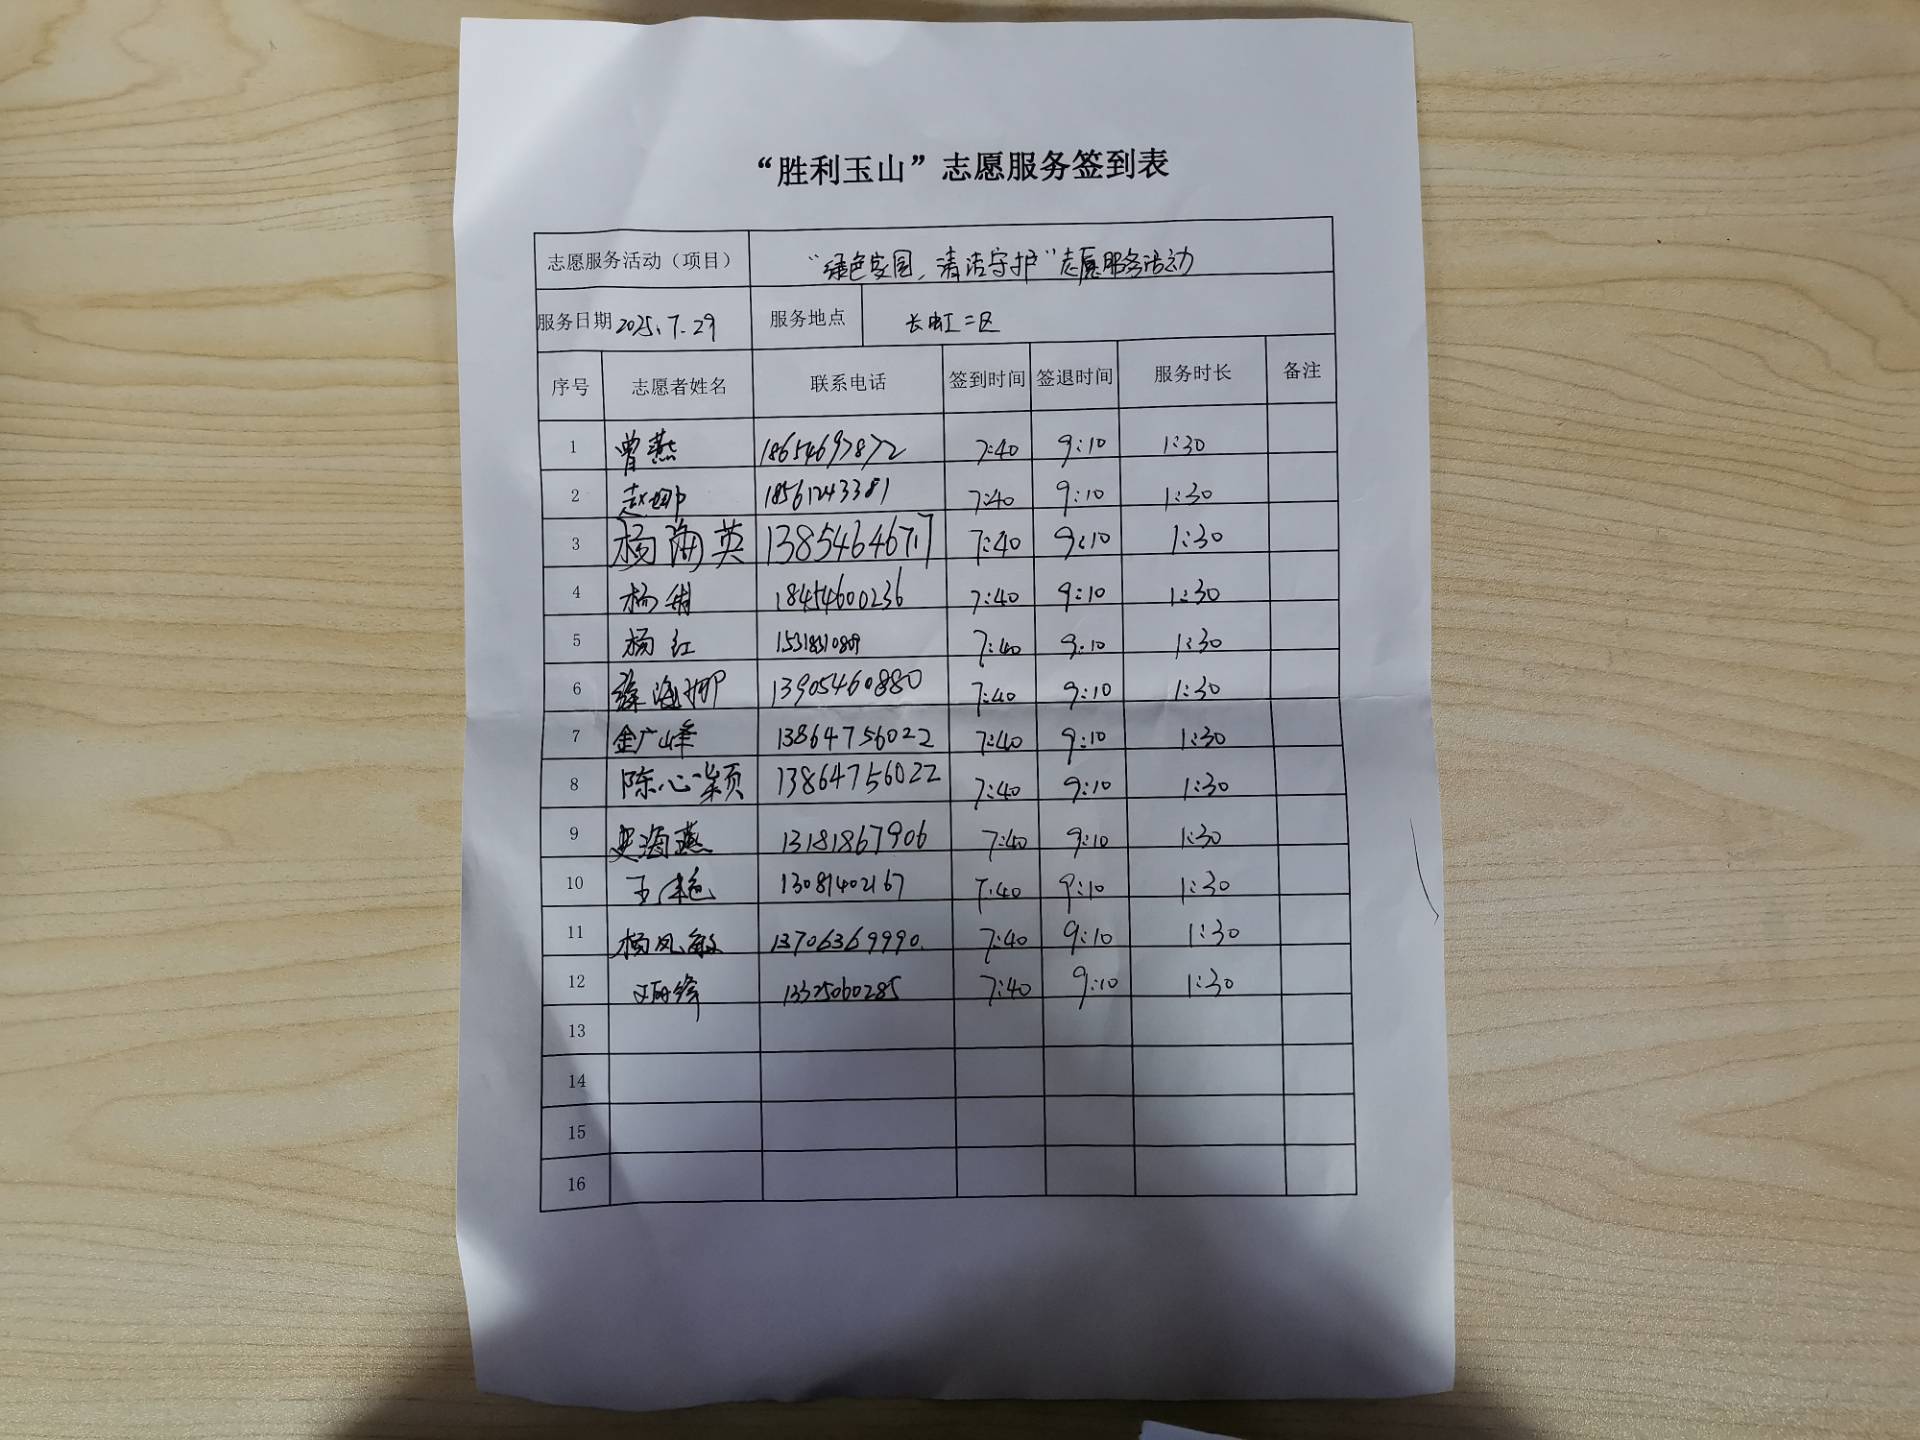 “胜利玉山”志愿服务签到表
志愿服务活动（项目） “绿色家园，清洁守护”志愿服务活动
服务日期 2025.7.29 服务地点 长虹二区
序号 志愿者姓名 联系电话 签到时间 签退时间 服务时长 备注
1 曾燕 18654697872 7:40 9:10 1:30
2 赵娜 18561243381 7:40 9:10 1:30
3 杨海英 13854646717 7:40 9:10 1:30
4 杨 18454600236 7:40 9:10 1:30
5 杨红 7:40 9:10 1:30
6 徐海娜 13905460880 7:40 9:10 1:30
7 金广峰 13864756022 7:40 9:10 1:30
8 陈心颖 13864756022 7:40 9:10 1:30
9 史海燕 13181867906 7:40 9:10 1:30
10 王艳 13081402167 7:40 9:10 1:30
11 杨凤敏 13706369990. 7:40 9:10 1:30
12 13325060285 7:40 9:10 1:30
13
14
15
16